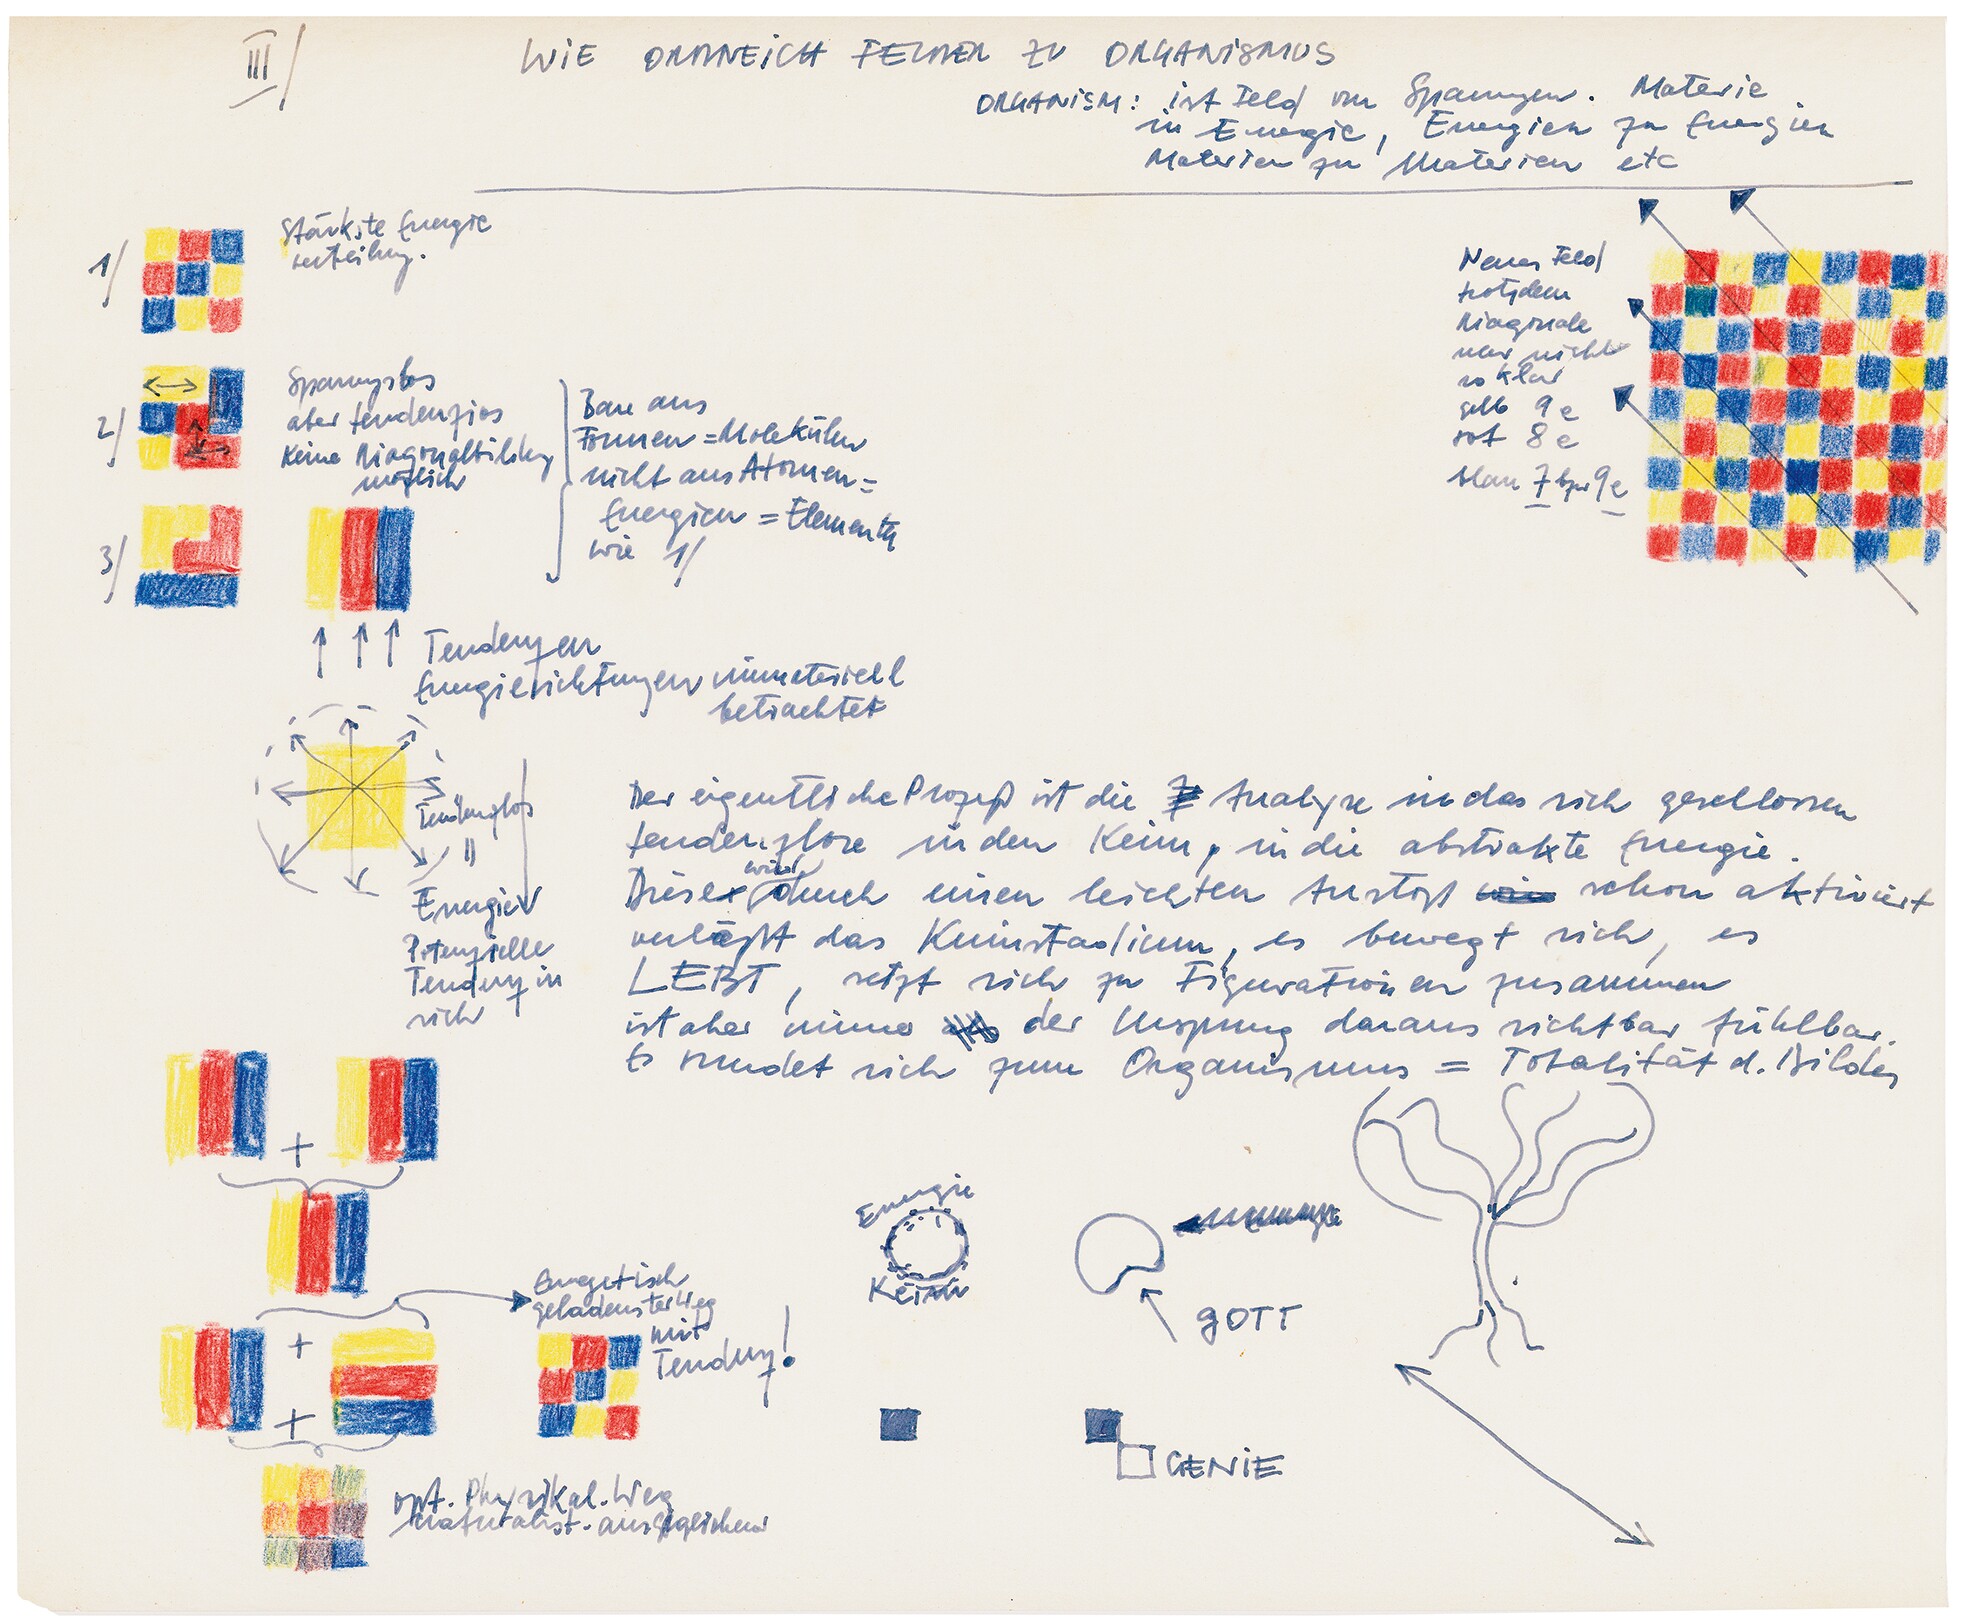 III/
WIE ORDNE ICH FELDER ZU ORGANISMUS
ORGANISM: ist Feld von Spannungen. Materie
in Energie, Energien zu Energien
Materien zu Materien etc
1/
Stärkste Energie
verteilung.
2/
Spannungslos
aber tendenziös
Keine Diagonalbildung
möglich
Bau aus
Formen = Molekülen
nicht aus Atomen =
Energien = Elementen
wie 1/
3/
Neues Feld
trotzdem
Diagonale
nur nicht
so klar
gelb 9e
rot 8e
blau 7 bzw 9e
Tendenzen
Energierichtungen immateriell
betrachtet
Tendenzlos
=
Energie
Potenzielle
Tendenz in
sich
Der eigentliche Prozeß ist die Analyse in das sich geschlossen
tendenzlose in den Keim, in die abstrakte Energie.
Dieser wird durch einen leichten Anstoß schon aktiviert
verläßt das Keimstadium, es bewegt sich, es
LEBT, setzt sich zu Figurationen zusammen
ist aber immer der Ursprung daraus sichtbar fühlbar.
Es rundet sich zum Organismus = Totalität d. Bildes
+
+
+
Energetisch
geladenster Weg
mit
Tendenz!
Energie
Keim
GOTT
GENIE
opt. Physikal. Weg
naturalist. ausgeglichener